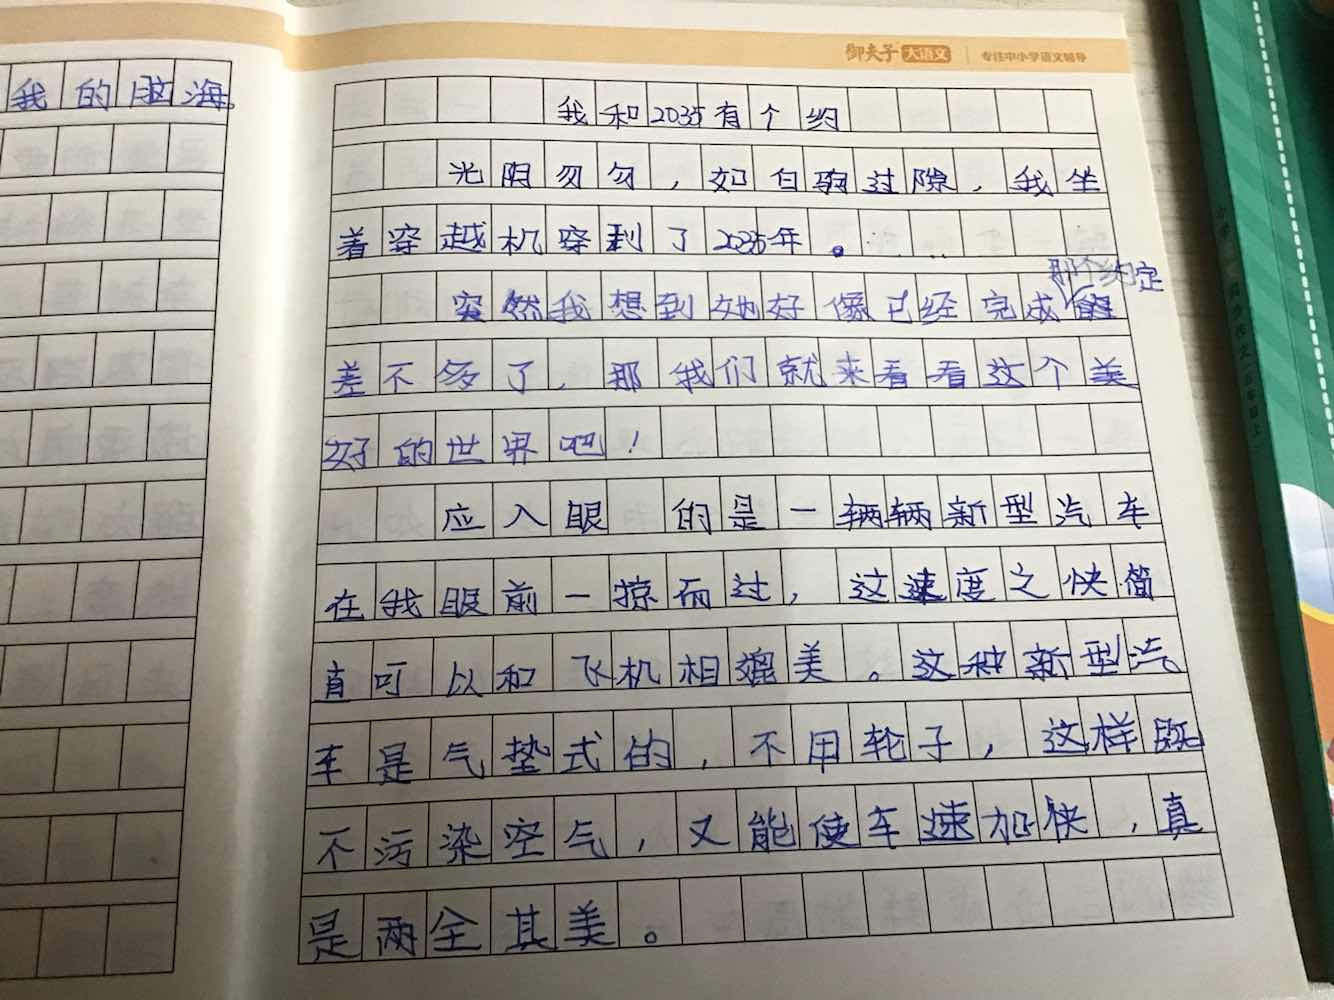 我的脑海。
御夫子 大语文 专注中小学语文辅导
我和2035有个约
光阴匆匆，如白驹过隙，我坐
着穿越机穿到了2035年。
那个约定
突然我想到她好像已经完成的
差不多了，那我们就来看看这个美
好的世界吧！
应入眼 的是一辆辆新型汽车
在我眼前一掠而过，这速度之快简
直可以和飞机相媲美。这种新型汽
车是气垫式的，不用轮子，这样既
不污染空气，又能使车速加快，真
是两全其美。